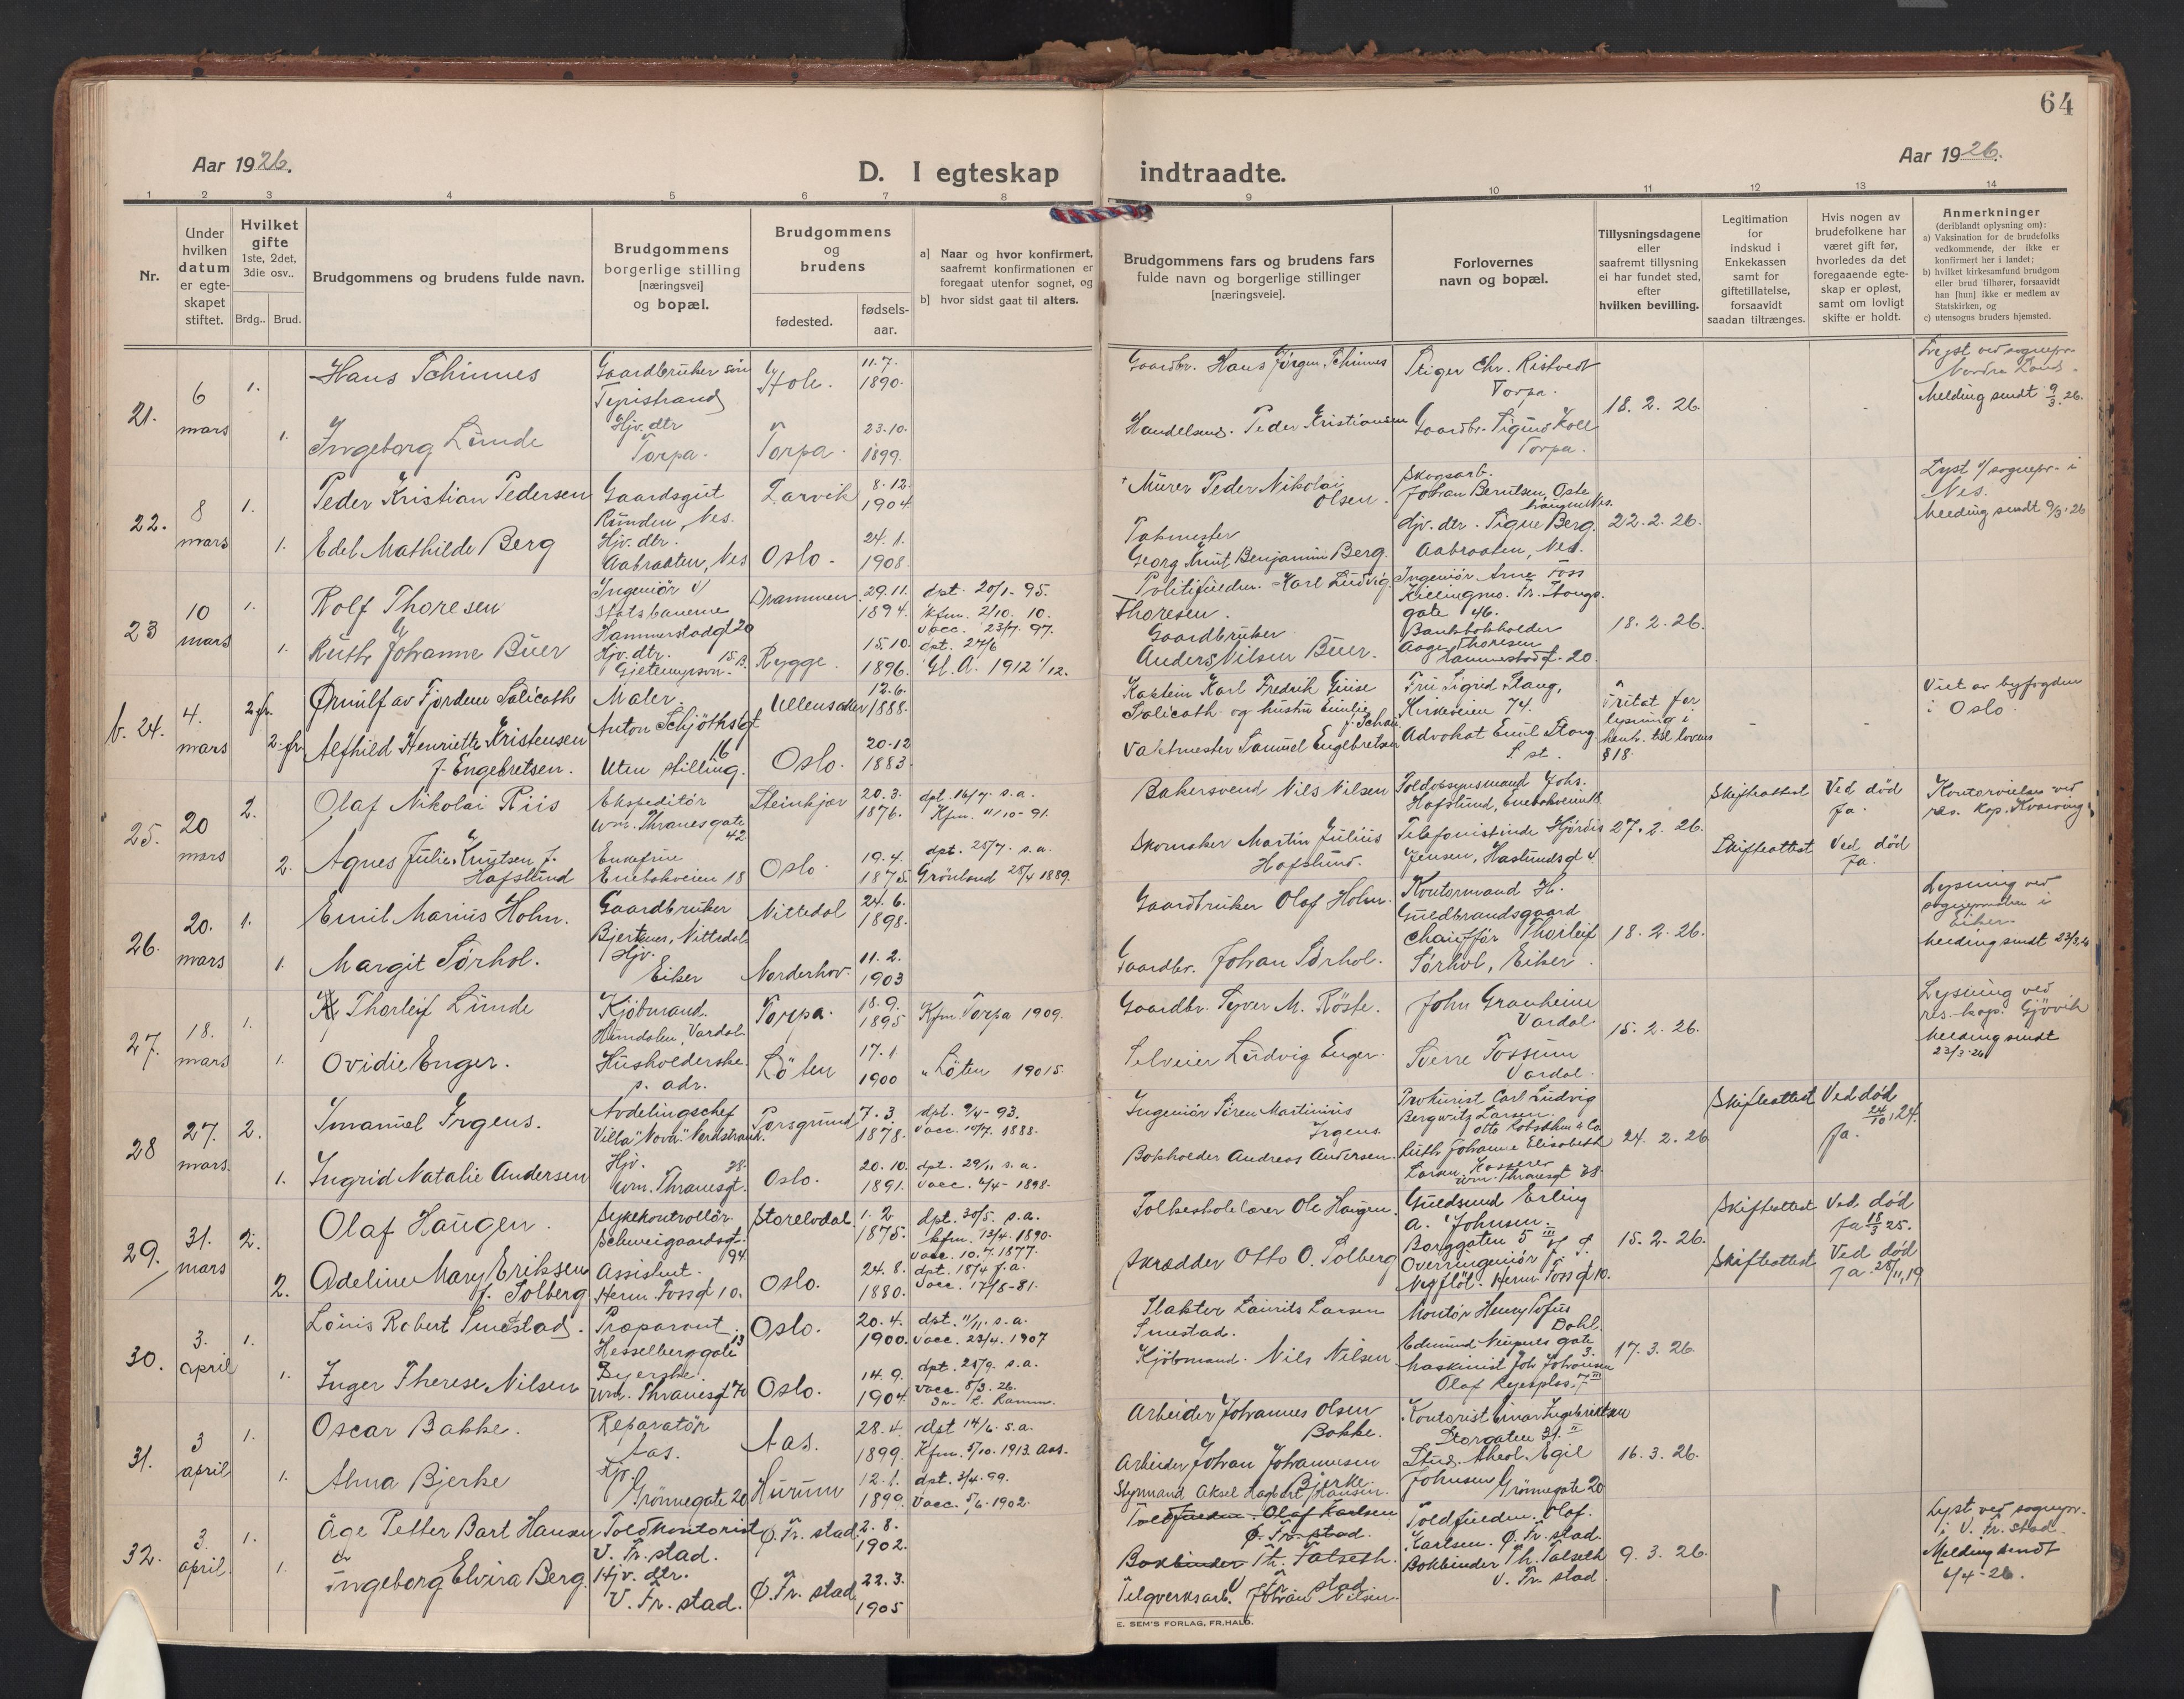 64
Aar 1926.
D. I egteskap indtraadte.
Aar 1926.
1 2 3 4 5 6 7 8 9 10 11 12 13 14
Nr.
Under
hvilken
datum
er egte-
skapet
stiftet.
Hvilket
gifte
1ste, 2det,
3die osv..
Brdg.. Brud.
Brudgommens og brudens fulde navn.
Brudgommens
borgerlige stilling
[næringsvei]
og bopæl.
Brudgommens
og
brudens
fødested.
fødsels-
aar.
a] Naar og hvor konfirmert,
saafremt konfirmationen er
foregaat utenfor sognet, og
b] hvor sidst gaat til alters.
Brudgommens fars og brudens fars
fulde navn og borgerlige stillinger
[næringsveie].
Forlovernes
navn og bopæl.
Tillysningsdagene
eller
saafremt tillysning
ei har fundet sted,
efter
hvilken bevilling.
Legitimation
for
indskud i
Enkekassen
samt for
giftetillatelse,
forsaavidt
saadan tiltrænges.
Hvis nogen av
brudefolkene har
været gift før,
hvorledes da det
foregaaende egte-
skap er opløst,
samt om lovligt
skifte er holdt.
Anmerkninger
(deriblandt oplysning om):
a) Vaksination for de brudefolks
vedkommende, der ikke er
konfirmert her i landet;
b) hvilket kirkesamfund brudgom
eller brud tilhører, forsaavidt
han [hun] ikke er medlem av
Statskirken, og
c) utensogns bruders hjemsted.
21.
6
mars
1.
Hans Schinnes
Gaardbruker søn
Tyristrand
Hole.
11.7.
1890.
Gaardbr. Hans Jørgen Schinnes
Stiger Chr. Ristvedt
Torpa.
18. 2. 26.
Nordre Land.
Melding sendt 9/3.26.
1.
Ingeborg Lunde
Hjv. dtr
Torpa.
Torpa.
23.10.
1899.
Handelsmd. Peder Kristiansen
Gaardbr. Sigurd Koll
Torpa.
22.
8
mars
1.
Peder Kristian Pedersen
Gaardsgut
Runden, Nes.
Larvik
8.12.
1904
Murer Peder Nikolai
Olsen.
Skogsarb.
Johan Berntsen, Oste
Nes.
22. 2. 26.
Lyst v/ sognepr. i
Nes.
Melding sendt 9/3.26
1.
Edel Mathilde Berg
Hjv. dtr.
Aabraaten, Nes
Oslo.
24.1.
1908
Georg Knut Benjamin Berg.
Hjv. dtr. Signe Berg.
Aabraaten, Nes.
23
10
mars
1.
Rolf Thoresen
Ingeniör v/
Statsbanerne
Hammerstadgt 20
Drammen
29.11.
1894.
dpt. 20/1-95.
Kfm. 2/10. 10.
vacc. 23/7. 97.
Politifuldm. Karl Ludvig
Thoresen.
Ingeniör Arne Foss
gate 46.
18. 2. 26.
1.
Ruth Johanne Buer
Hjv. dtr. 15 B.
Rygge.
15.10.
1896.
dpt. 27/6
Gl. A. 1912 1/12.
Gaardbruker
Anders Nilsen Buer.
Bankbokholder
Aage Thoresen
Hammerstadgt. 20.
b. 24.
4.
mars
2. fr.
Ørnulf av Fjordem Salicath
Maler.
Anton Schjöthsgt
16
Ullensaker
12.6.
1888.
Kaptein Karl Fredrik Giise
Salicath og hustru Emilie
Fru Sigrid Stang,
Kirkeveien 74.
Fritat for
lysning i
henh. til lovens
§ 18.
Viet av byfogden
i Oslo.
2. fr
Alfhild Henriette Kristensen
f. Engebretsen.
Uten stilling.
Oslo.
20.12
1883.
Vaktmester Samuel Engebretsen
Advokat Emil Stang
S. st.
25.
20
mars
2.
Olaf Nikolai Riis
Ekspeditör
Wm. Thranesgate
42
Steinkjær
20.3.
1876.
dpt. 16/7. s. a.
Kfm. 11/10-91.
Bakersvend Nils Nilsen
Toldopsynsmand Johs.
Hafslund, Enebakveien 18.
27. 2. 26.
Skifteattest
Ved död
Ja.
Kontorvielse ved
res. kap. Kvasving
2.
Agnes Julie Knutsen f.
Hafslund
Enkefrue
Enebakveien 18
Oslo
19.4.
1875.
dpt. 25/7. s. a.
Grönland 28/4 1889.
Skomaker Martin Julius
Hafslund.
Telefonistinde Hjördis
Jensen, Haslundsgt 4.
Skifteattest
Ved död
Ja.
26.
20.
mars
1.
Emil Marius Holm.
Gaardbruker
Nittedal
Nittedal
24.6.
1898.
Gaardbruker Olaf Holm.
Kontormand H.
Guldbrandsgaard
18. 2. 26.
Lysning ved
sognepresten i
Eiker.
Melding sendt 23/3.26
1.
Margit Sørhol.
Hjv.
Eiker
Norderhov.
11.2.
1903
Gaardbr. Johan Sørhol.
Chauffør Thorleif
Sørhol, Eiker.
27.
18.
mars
1.
Thorleif Lunde
Kjöbmand.
Hunndalen, Vardal.
Torpa.
18.9.
1895
Kfm. Torpa 1909.
Gaardbr. Syver M. Röste.
John Granheim
Vardal
15. 2. 26.
Lysning ved
res. kap. Gjövik
Melding sendt
23/3.26
1.
Ovidie Enger.
Husholderske
s. adr.
Löten
17.1
1900
" Löten 1915.
Selveier Ludvig Enger.
Sverre Fossum
Vardal.
28
27.
mars.
2.
Imanuel Irgens.
Avdelingschef
Villa "Nova" Nordstrand.
Porsgrund
7.3.
1878.
dpt. 9/4-93.
vacc. 10/7. 1888.
Ingeniör Sören Martinius
Irgens.
Prokurist Carl Ludvig
Bergwitz Larsen.
24. 2. 26
Skifteattest
Ved död
24/10.24.
Ja.
1.
Ingrid Natalie Andersen
Hjv. 28.
Wm. Thranesgt.
Oslo.
20.10.
1891.
dpt. 29/11 s. a.
vacc. 4/4-1898.
Bokholder Andreas Andersen.
Ruth Johanne Elisabeth
Larsen, Kasserer
Wm. Thranesgt 28.
29.
31.
mars
2.
Olaf Haugen.
Sykekontrollör
Schweigaardsgt.
94.
Storelvdal.
1.2
1875.
dpt. 30/5. s. a.
kfm. 13/4. 1890.
vacc. 10.7.1877.
Folkeskolelærer Ole Haugen.
Guldsmed Erling
A. Johnsen.
Borggaten 5 III
15. 2. 26.
Skifteattest
Ved död
Ja 18/3 25.
2.
Adeline Mary Eriksen
f. Solberg
Assistent.
Herm. Fossgt 10.
Oslo.
24.8.
1880.
dpt. 18/4 f. a.
vacc. 17/8-81.
Skrædder Otto O. Solberg
Overingeniör J.
Herm. Fossgt 10.
Skifteattest
Ved död
Ja. 28/11.19
30.
3.
april
1.
Louis Robert Smestad.
Præparant.
Hesselberggate 13
Oslo.
20.4.
1900.
dpt. 11/11. s. a.
vacc. 23/4. 1907
Slakter Laurits Larsen
Smestad.
Montör Henry Tofus
Dahl.
Edmund Neupertsgate
3.
17. 3. 26.
1.
Inger Therese Nilsen
Syerske.
Wm. Thranesgt 70
Oslo.
14.9.
1904.
dpt. 25/9. s. a.
vacc. 8/3. 26.
Kjöbmand. Nils Nilsen
Maskinist Joh Johansen
Olaf Ryesplas, 7 III
31.
3
april
1.
Oscar Bakke.
Reparatör
Aas.
Aas.
28.4.
1899.
dpt 14/6. s. a.
Kfm. 5/10. 1913. Aas.
Arbeider Johannes Olsen
Bakke.
Kontorist Einar Ingebrigtsen
Storgaten 31. II
16. 3. 26.
1.
Alma Bjerke
Hjv.
Grönnegate 20
Hurum
12.1.
1899.
dpt. 3/4. 99.
vacc. 5/6. 1902.
Arbeider Johan Johannesen
Bjerke.
Stud. theol. Egil
Johnsen Grönnegate 20
32.
3.
april
1.
Åge Petter Bart Hansen
Toldkontorist
V. Fr. stad.
Ø. Fr. stad
2.8.
1902.
Styrmand Aksel Dagbert Hansen.
Toldfuldm. Olaf Karlsen
Ø. Fr. stad.
Toldfuldm. Olaf.
Karlsen. Ø. Fr. stad.
9. 3. 26.
Lyst ved sognepr.
i V. Fr. stad.
Melding sendt
6/4-26.
1.
Ingeborg Elvira Berg.
Hjv. dtr.
V. Fr. stad.
Ø. Fr. stad
22.3.
1905
Bokbinder Th. Falseth.
V. Fr. stad
Teglverksarb. Johan Nilsen.
Bokbinder Th. Falseth
V. Fr. stad
E. SEM'S FORLAG, FR.HALD.